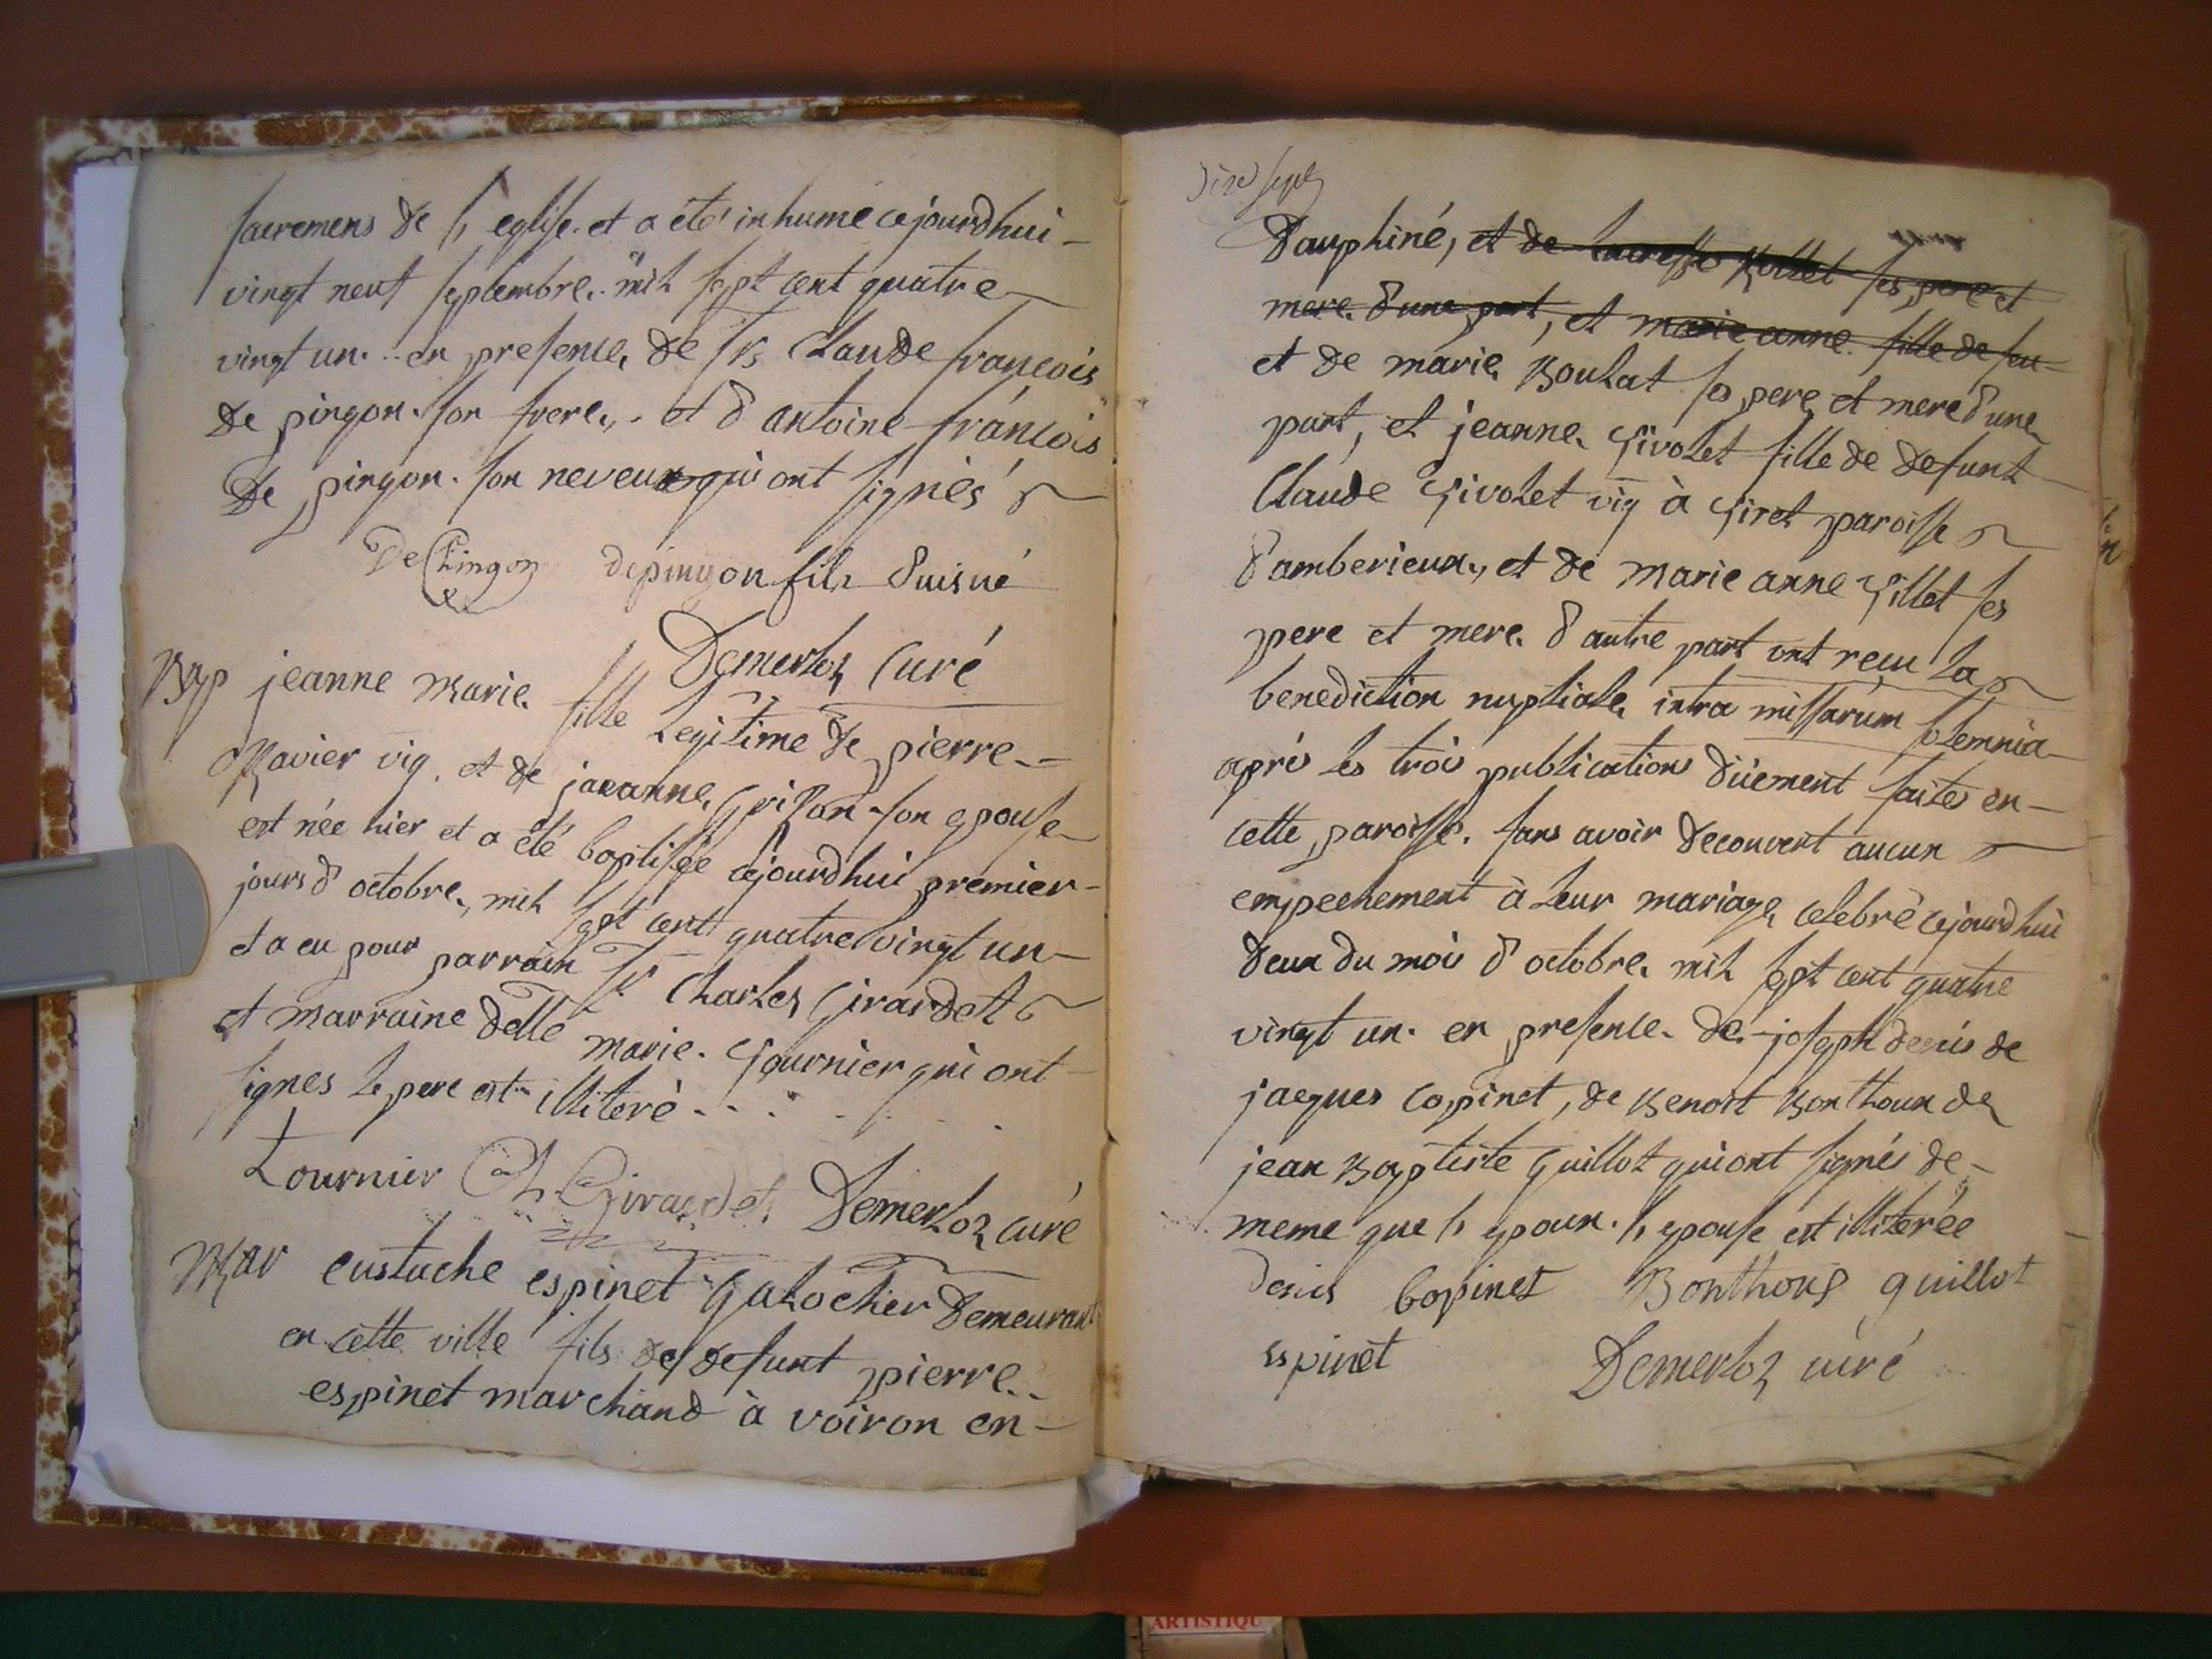 sacremens de l'eglise. et a été inhumé cejourdhui
vingt neuf septembre. mil sept cent quatre
vingt un. en presence de Sr Claude françois
de pingon. son frere. et d'antoine françois
de pingon. son neveu qui ont signés
De Pingon depingon fils Puisné
Demerloz Curé
Bap jeanne Marie. fille Legitime de pierre
Ravier vig. et de jaeanne Grillon son epouse
est née hier et a été baptisée cejourdhui premier
jours d'octobre. mil sept cent quatre vingt un
et a eu pour parrain Sr. Charles Girardet
et marraine delle marie. Tournier qui ont
signes le pere est illiteré
Tournier Ch Girardet Demerloz curé
Mar eustache espinet Galochier demeurant
en cette ville fils de defunt pierre
espinet marchand à voiron en
dix sept
Dauphiné, et de Rollet ses pere et
mere. d'une part, et marie anne. fille de feu
et de marie Boulat ses pere et mere d'une
part, et jeanne. Givolet fille de defunt
Claude Givolet vig à Giret paroisse
d'amberieux, et de Marie anne Gillet ses
pere et mere. d'autre part ont reçu la
benediction nuptiale intra missarum solemnia
après les trois publications düement faites en
cette paroisse. sans avoir decouvert aucun
empechement à leur mariage celebrè cejourdhui
deux du mois d'octobre. mil sept cent quatre
vingt un. en presence. de. joseph denis de
jacques copinet, de Benoit Bonthoux de
jean Baptiste Guillot qui ont signés de
meme que l'epoux. l'epouse est illiterée
Denis Copinet Bonthoux guillot
espinet Demerloz curé
ARTISTIQU